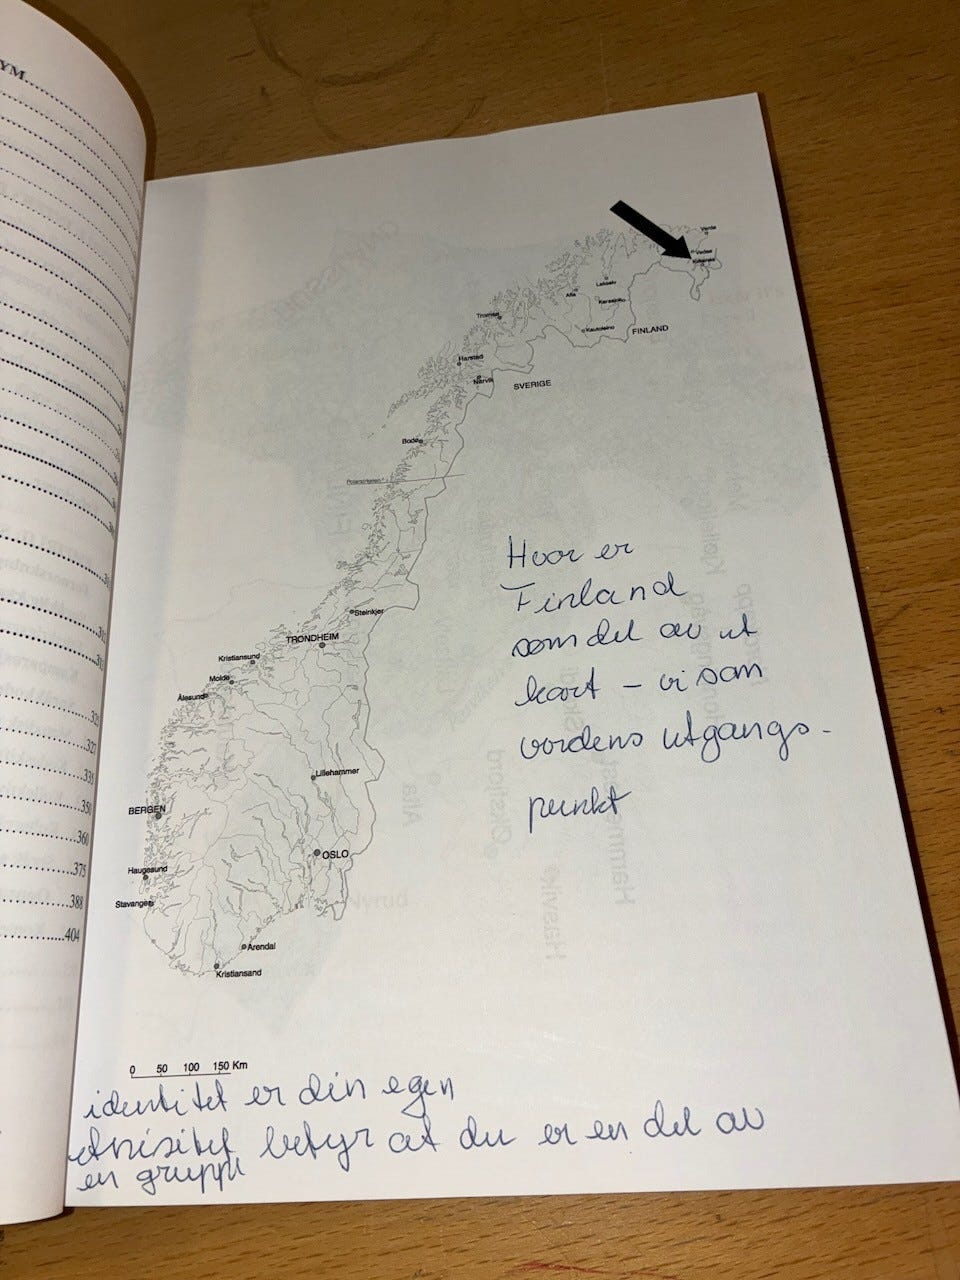 YM
Vardø
Vadsø
Kirkenes
Lakselv
Alta
Karasjok
Tromsø
Kautokeino
FINLAND
Harstad
Narvik
SVERIGE
Bodø
Polarsirkelen
Hvor er
Finland
som del av ut
kart – vi som
vordens utgangs-
punkt
Steinkjer
TRONDHEIM
Kristiansund
Molde
Ålesund
Lillehammer
BERGEN
OSLO
Haugesund
Stavanger
Arendal
Kristiansand
335
350
360
375
388
404
0 50 100 150 Km
identitet er din egen
etnisitet betyr at du er en del av
en gruppe